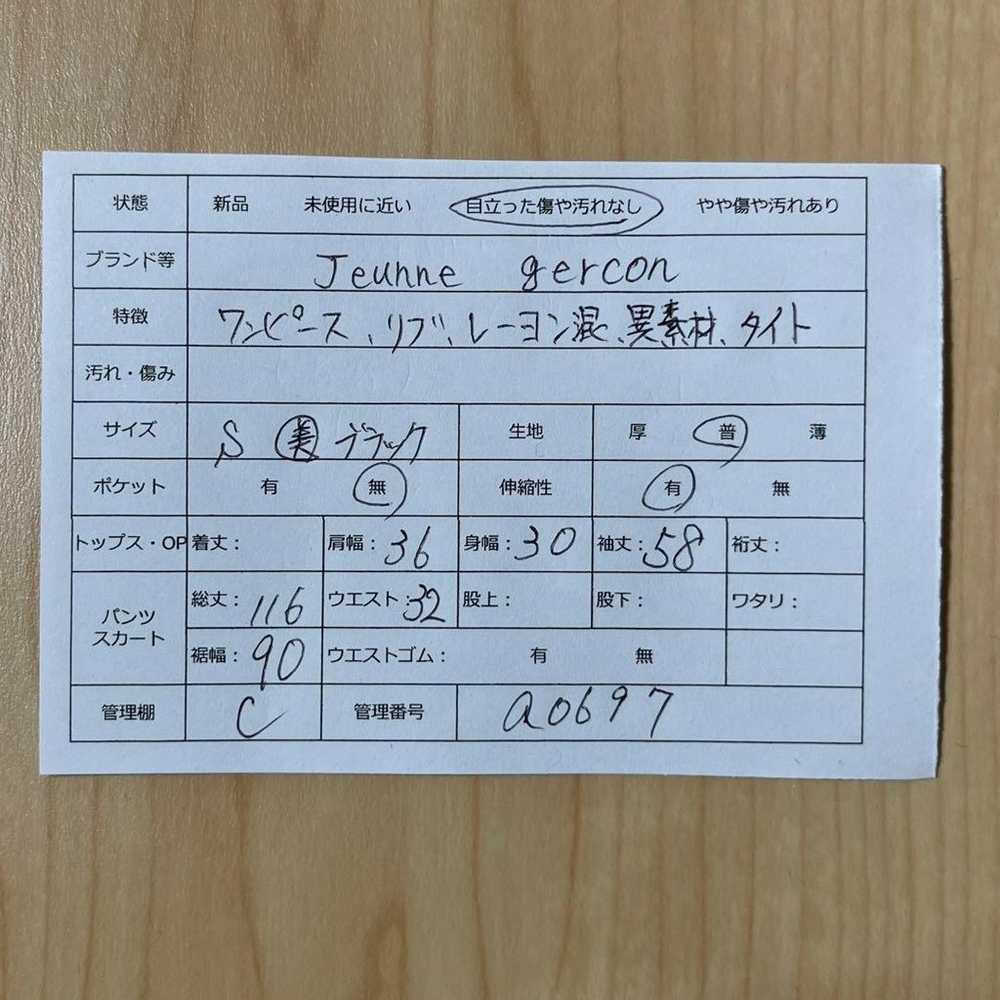 状態 新品 未使用に近い 目立った傷や汚れなし やや傷や汚れあり
ブランド等 Jeunne gercon
特徴 ワンピース、リブ、レーヨン混、異素材、タイト
汚れ・傷み
サイズ S 美 ブラック 生地 厚 普 薄
ポケット 有 無 伸縮性 有 無
トップス・OP 着丈： 肩幅：36 身幅：30 袖丈：58 裄丈：
パンツ スカート 総丈：116 ウエスト：32 股上： 股下： ワタリ：
裾幅：90 ウエストゴム： 有 無
管理棚 C 管理番号 a0697